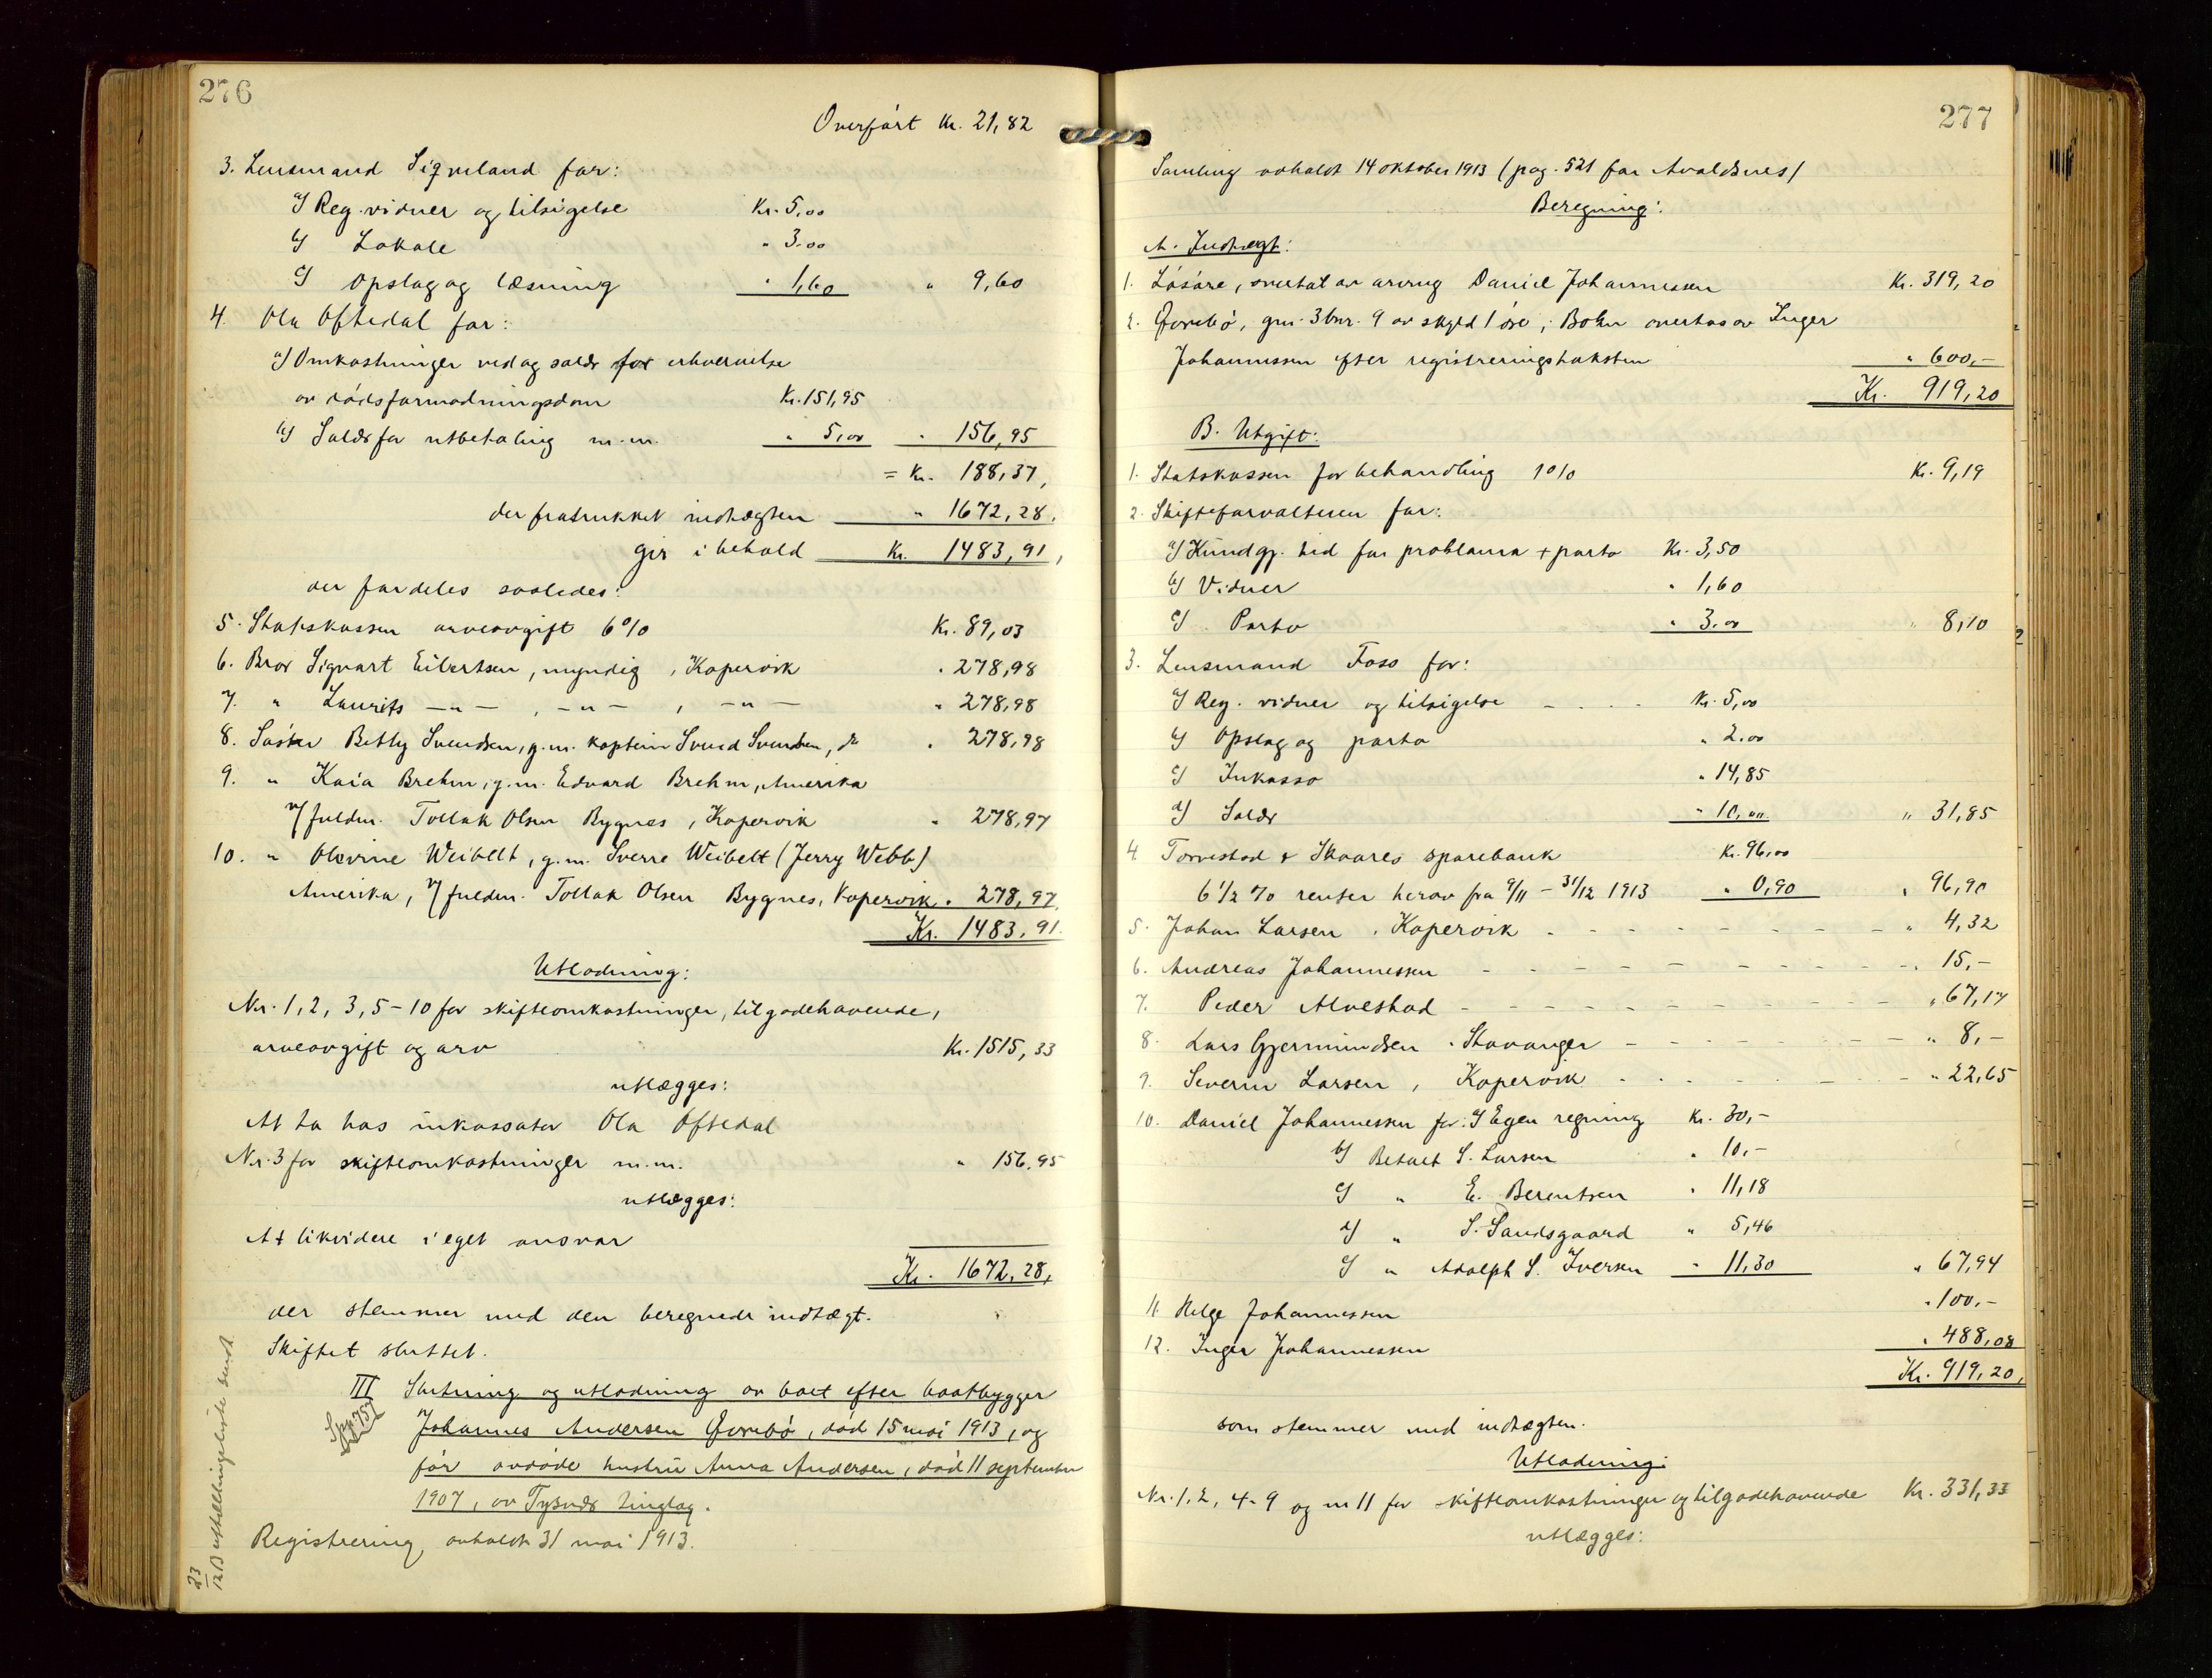 276
Overført Kr. 21,82
3. Lensmand Sigveland for:
a/ Reg. vidner og tilsigelse Kr. 5,00
b/ Lokale " 3.00
c/ Opslag og læsning " 1,60 " 9,60
4. Ola Oftedal for:
a/ Omkostninger ved og salær for erhvervelse
av dødsformodningsdom Kr. 151,95
b/ Salær for utbetaling m.m. " 5,00 " 156,95
= Kr. 188,37,
der fratrukket indtægten " 1672,28.
gir i behold Kr. 1483,91,
der fordeles saaledes:
5. Statskassen arveavgift 6% Kr. 89,03
6. Bror Sigvart Eilertsen, myndig, Kopervik " 278,98
7. " Laurits —"—, —"—, —"— " 278,98
8. Søster Betty Svendsen, g.m. kaptein Svend Svendsen, do " 278,98
9. " Kaia Brehm, g.m. Edvard Brehm, Amerika
v/ fuldm. Tollak Olsen Bygnes, Kopervik " 278,97
10. " Olevine Weibelt, g.m. Sverre Weibelt (Jerry Webb)
Amerika, v/ fuldm. Tollak Olsen Bygnes, Kopervik " 278,97
Kr. 1483,91
Utlodning:
Nr. 1, 2, 3, 5-10 for skifteomkostninger, tilgodehavende,
arveavgift og arv Kr. 1515,33
utlægges:
At ta hos inkassator Ola Oftedal
Nr. 3 for skifteomkostninger m.m. " 156,95
utlægges:
At likvidere i eget ansvar
Kr. 1672,28,
der stemmer med den beregnede indtægt.
Skiftet sluttet.
III Slutning og utlodning av boet efter baatbygger
Johannes Andersen Gorebø, død 15 mai 1913, og
før avdøde hustru Anna Andersen, død 11 september
1907, av Tysvær tinglag.
Registrering, avholdt 31 mai 1913.
277
Samling avholdt 14 oktober 1913 (pag. 521 for Avaldsnes)
Beregning:
A. Indtægt:
1. Løsøre, overtat av arving Daniel Johannessen Kr. 319,20
2. Gorebø, gnr. 3 bnr. 9 av skyld 1 øre, Bokn overtas av Inger
Johannessen efter registreringstaksten " 600,-
Kr. 919,20
B. Utgift:
1. Statskassen for behandling 1% Kr. 9,19
2. Skifteforvalteren for:
a/ Kundgj. tid for proklama + porto Kr. 3,50
b/ Vidner " 1,60
c/ Porto " 3.00 " 8,10
3. Lensmand Foss for:
a/ Reg. vidner og tilsigelse - . . . Kr. 5,00
b/ Opslag og porto " 2.00
c/ Inkasso " 14,85
d/ Salær " 10,00 " 31,85
4. Torvestad & Skaares sparebank Kr. 96,00
6 1/2 % renter herav fra 9/11 - 31/12 1913 " 0,90 " 96,90
5. Johan Larsen, Kopervik " 4,32
6. Andreas Johannessen " 15,-
7. Peder Alvestad " 67,17
8. Lars Gjermundsen, Stavanger " 8,-
9. Severin Larsen, Kopervik " 22,65
10. Daniel Johannessen for: a/ Egen regning Kr. 30,-
b/ Betalt S. Larsen " 10,-
c/ " E. Berentsen " 11,18
d/ " S. Sandsgaard " 5,46
e/ " Adolph S. Iversen " 11,30 " 67,94
11. Helge Johannessen " 100,-
12. Inger Johannessen " 488,08
Kr. 919,20,
som stemmer med indtægten.
Utlodning:
Nr. 1, 2, 4-9 og nr 11 for skifteomkostninger og tilgodehavende Kr. 331,33
utlægges: